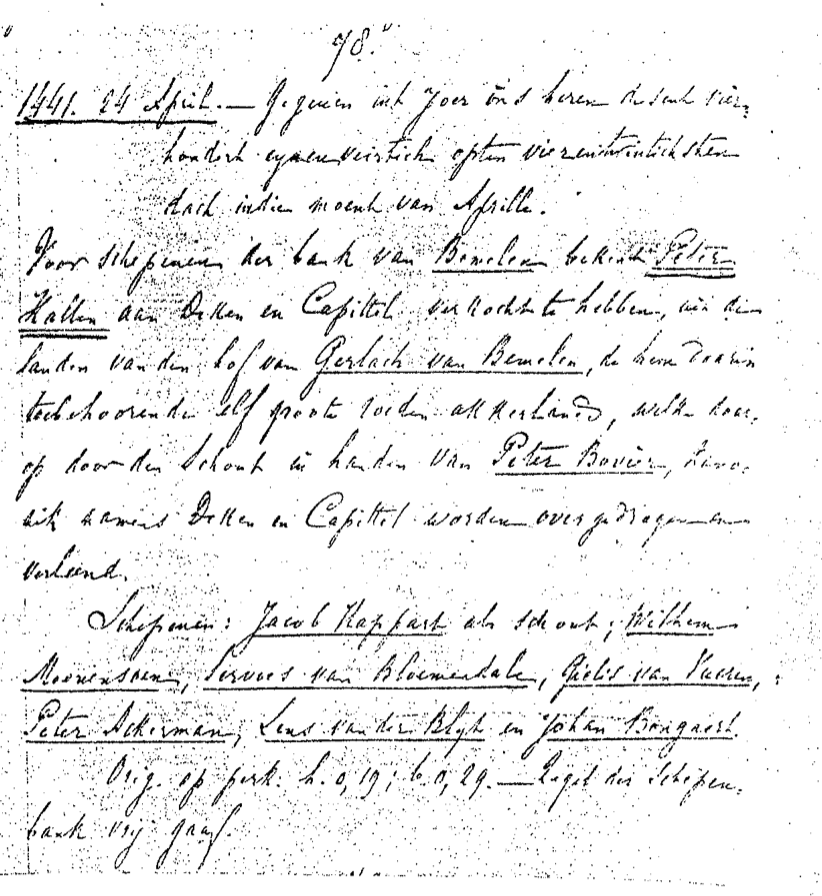 78.
1441. 24 April. — Gegeven int Joer ons heren dusent vier-
hondert eynenveirtich opten vierentwintichsten
dach indien moent van Aprille.
Voor schepenen der bank van Bemelen bekent Peter
Hallen aan Deken en Capittel verkocht te hebben, uit de
landen van den hof van Gerlach van Bemelen, de hem daarin
toebehoorende elf groote roeden akkerlands, welke daar-
op door den Schout in handen van Peter Bovier, kano-
nik namens Deken en Capittel worden overgedragen en
verleend.
Schepenen: Jacob Kappart als schout; Willem
Moenensoen, Servoes van Bloemendale, Gielis van Vueren,
Peter Ackerman, Lens van der Blyt en Johan Bongaert.
Orig. op perk. h. 0,19; b. 0,29. — Zegel der Schepen-
bank vrij gaaf.